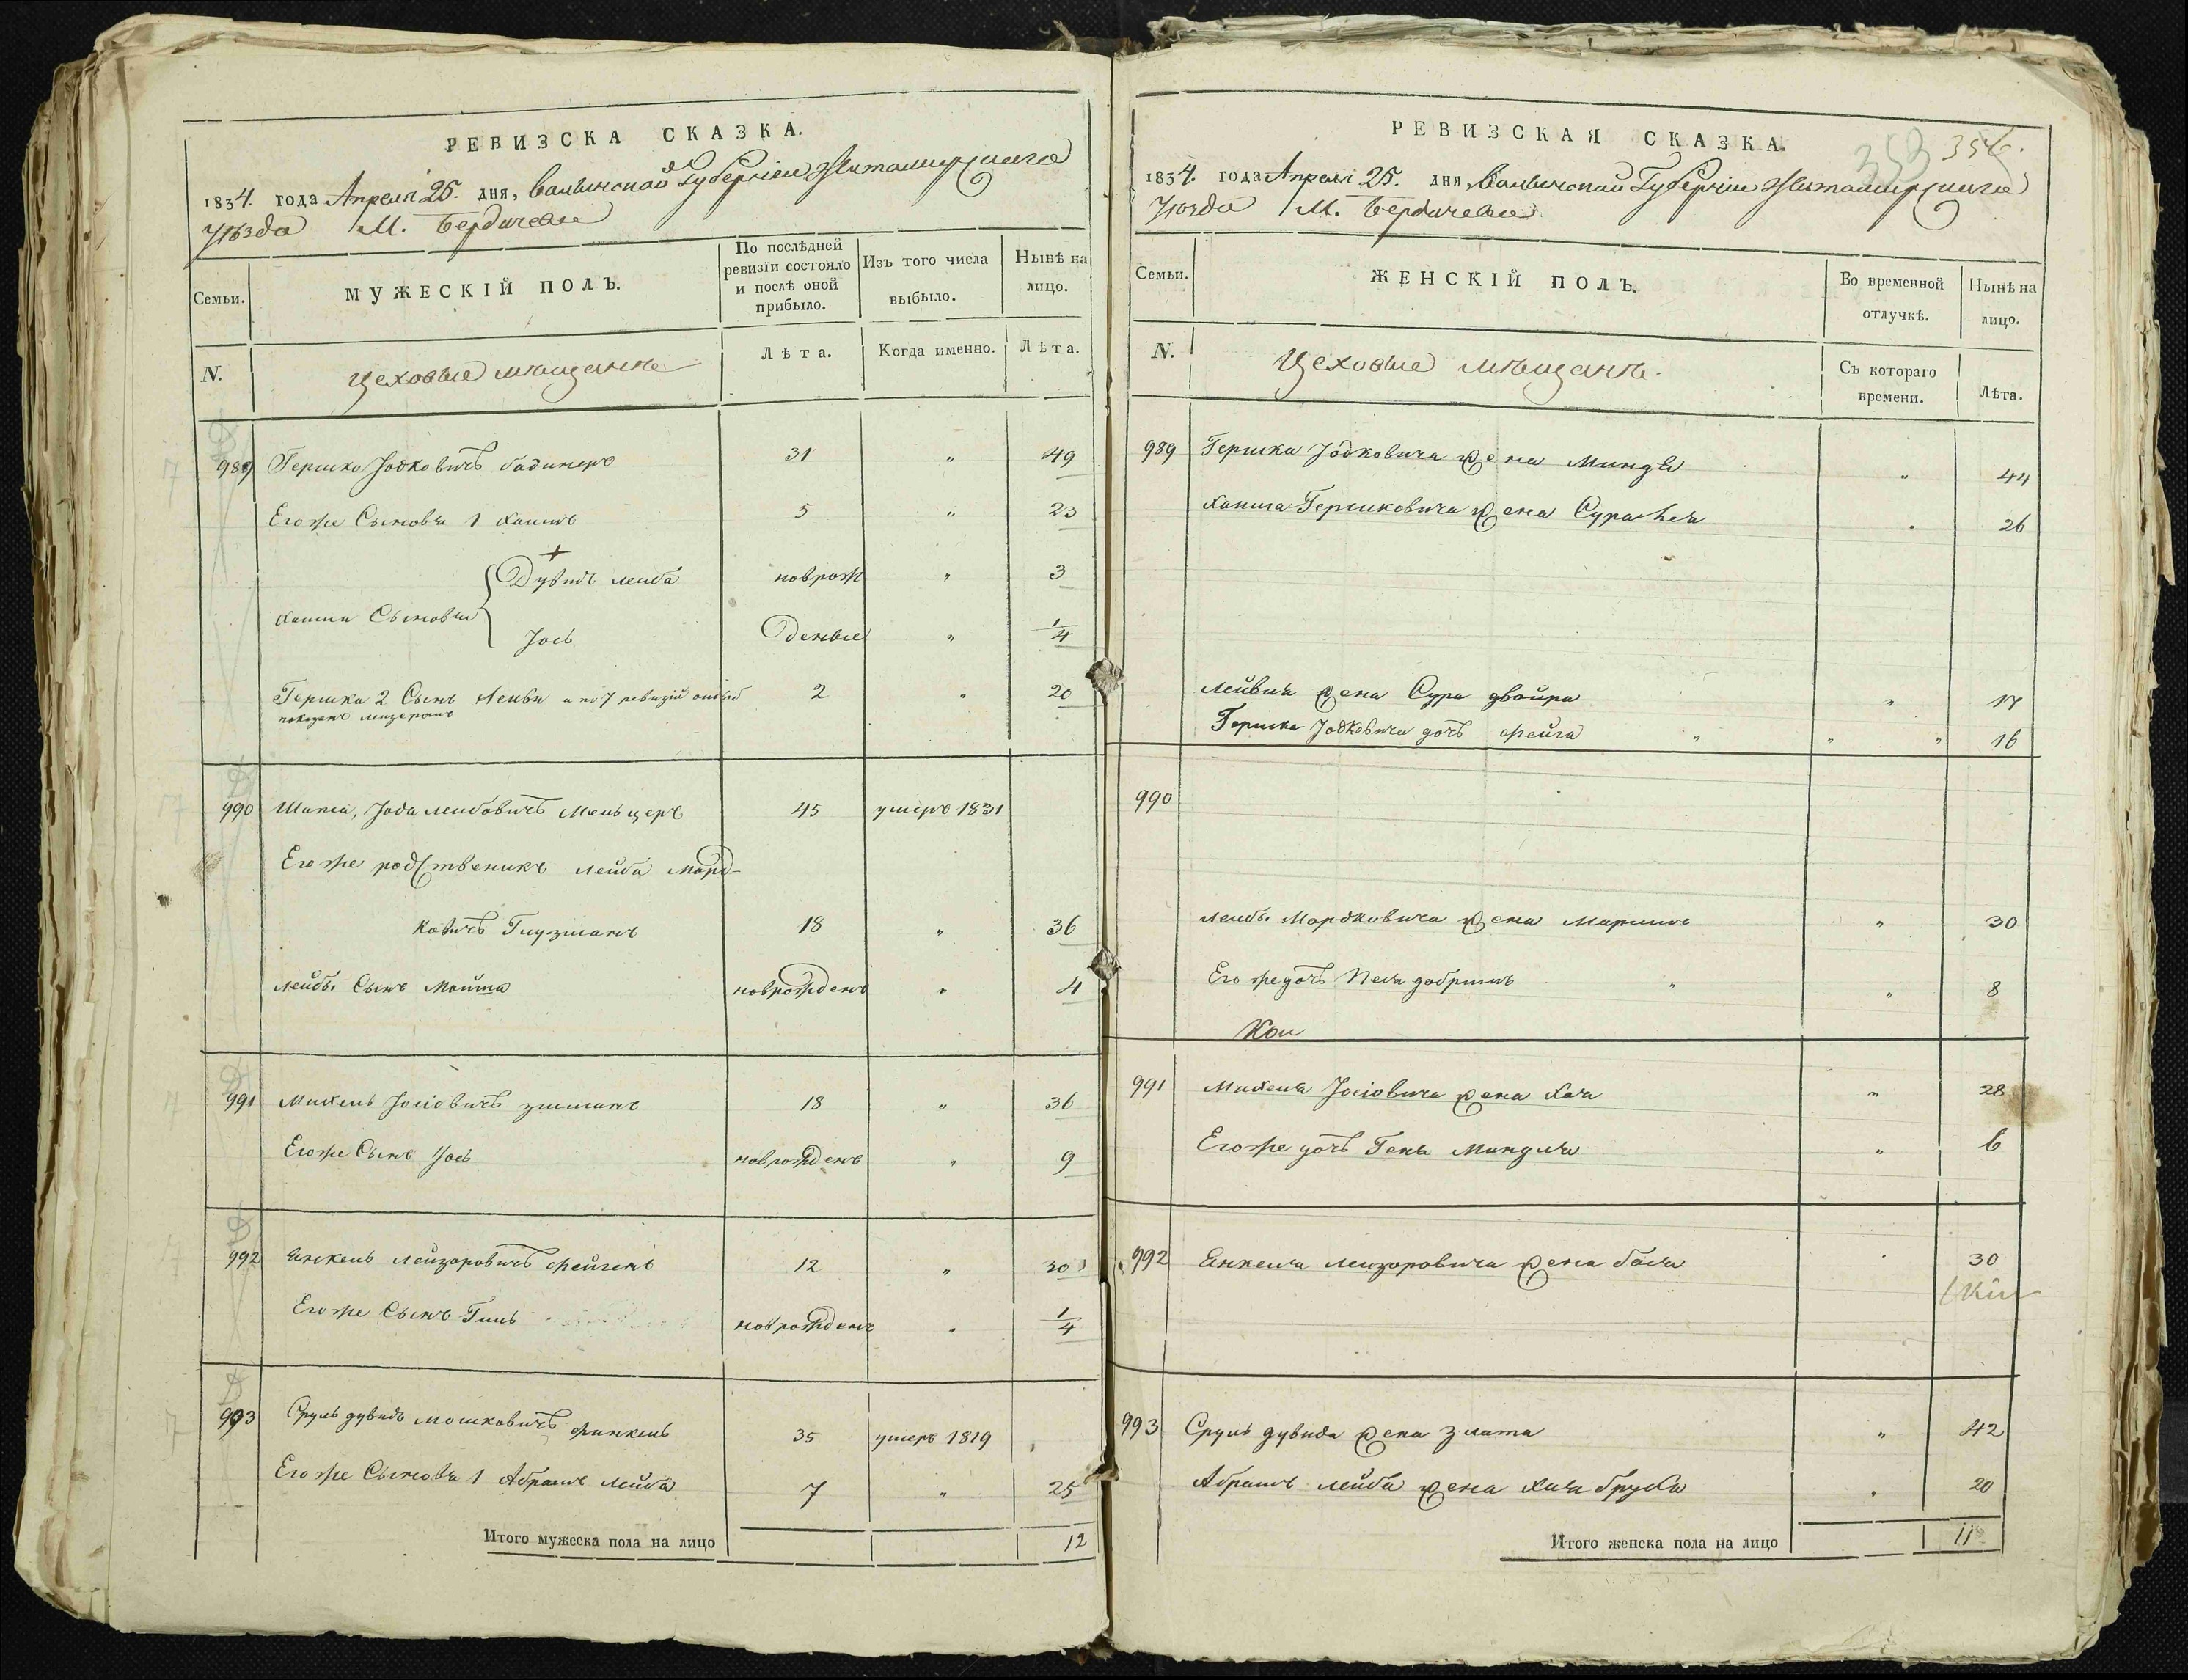 РЕВИЗСКА СКАЗКА.
1834. года Апреля 25. дня, Волынской Губернiи Житомирскаго
Уѣзда М. Бердичева
Семьи.
МУЖЕСКIЙ ПОЛЪ.
По послѣдней
ревизiи состояло
и послѣ оной
прибыло.
Изъ того числа
выбыло.
Нынѣ на
лицо.
N.
Цеховые мѣщане
Лѣта.
Когда именно.
Лѣта.
989 Гершко Іодковичъ 31 " 49
Егоже Сыновья 1 Хаимъ 5 " 23
Дувидъ Лейба новрож " 3
Хаима Сыновья
Іось деные " 1/4
Гершка 2 Сынъ Лейви и по 7 ревизiй 2 " 20
показанъ
990 Шапса, Іода Лейбовичъ Мельцеръ 45 умеръ 1831
Егоже родственикъ Лейба Морд-
ковичъ Глузманъ 18 " 36
Лейбы Сынъ новрожденъ " 4
991 Михель Іосiовичъ 18 " 36
Егоже Сынъ Іось новрожденъ " 9
992 Янкель Лейзоровичъ 12 " 30
Егоже Сынъ новрожденъ " 1/4
993 Сруль Дувидъ Мошковичъ Финкель 35 умеръ 1819
Егоже Сыновья 1 Абрамъ Лейба 7 " 25
Итого мужеска пола на лицо 12
РЕВИЗСКАЯ СКАЗКА.
353 356.
1834. года Апреля 25. дня, Волынской Губернiи Житомирскаго
Уѣзда М. Бердичева
Семьи.
ЖЕНСКIЙ ПОЛЪ.
Во временной
отлучкѣ.
Нынѣ на
лицо.
N.
Цеховые мѣщане.
Съ котораго
времени.
Лѣта.
989 Гершка Іодковича жена Миндя " 44
Хаима Гершковича жена Сура " 26
Лейвия жена Сура Двойра " 17
Гершка Іодковича дочь Фейга " " " 16
990
Лейбы Мордковича жена " 30
Его же дочь " " 8
991 Михеля Іосiовича жена Хая " 28
Егоже дочь Миндля " 6
992 Янкеля Лейзоровича жена Бася 30
993 Сруль Дувида жена Злата " 42
Абрамъ Лейба жена Хая Бруха " 20
Итого женска пола на лицо 11